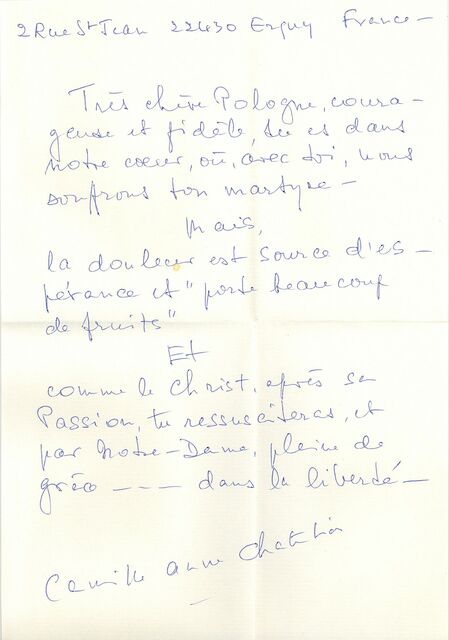 2 Rue St Jean 22430 Erquy France -
Très chère Pologne, coura-
geuse et fidèle, tu es dans
notre coeur, où, avec toi, nous
souffrons ton martyre -
Mais,
la douleur est source d'es-
pérance et "porte beaucoup
de fruits"
Et
comme le Christ, après sa
Passion, tu ressusciteras, et
par Notre-Dame, pleine de
grâce ---- dans la liberté -
Camille Anne